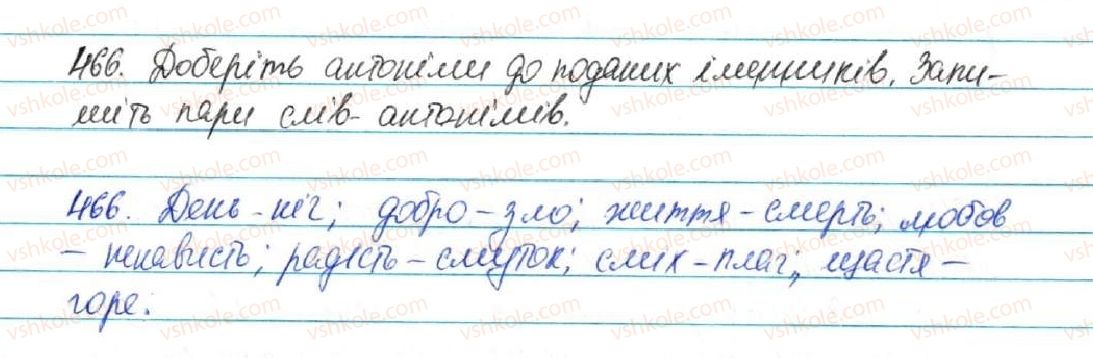 466. Доберіть антоніми до поданих іменників. Запи-
шіть пари слів-антонімів.
466. День - ніч; добро - зло; життя - смерть; любов
- ненависть; радість - смуток; сміх - плач; щастя -
горе.